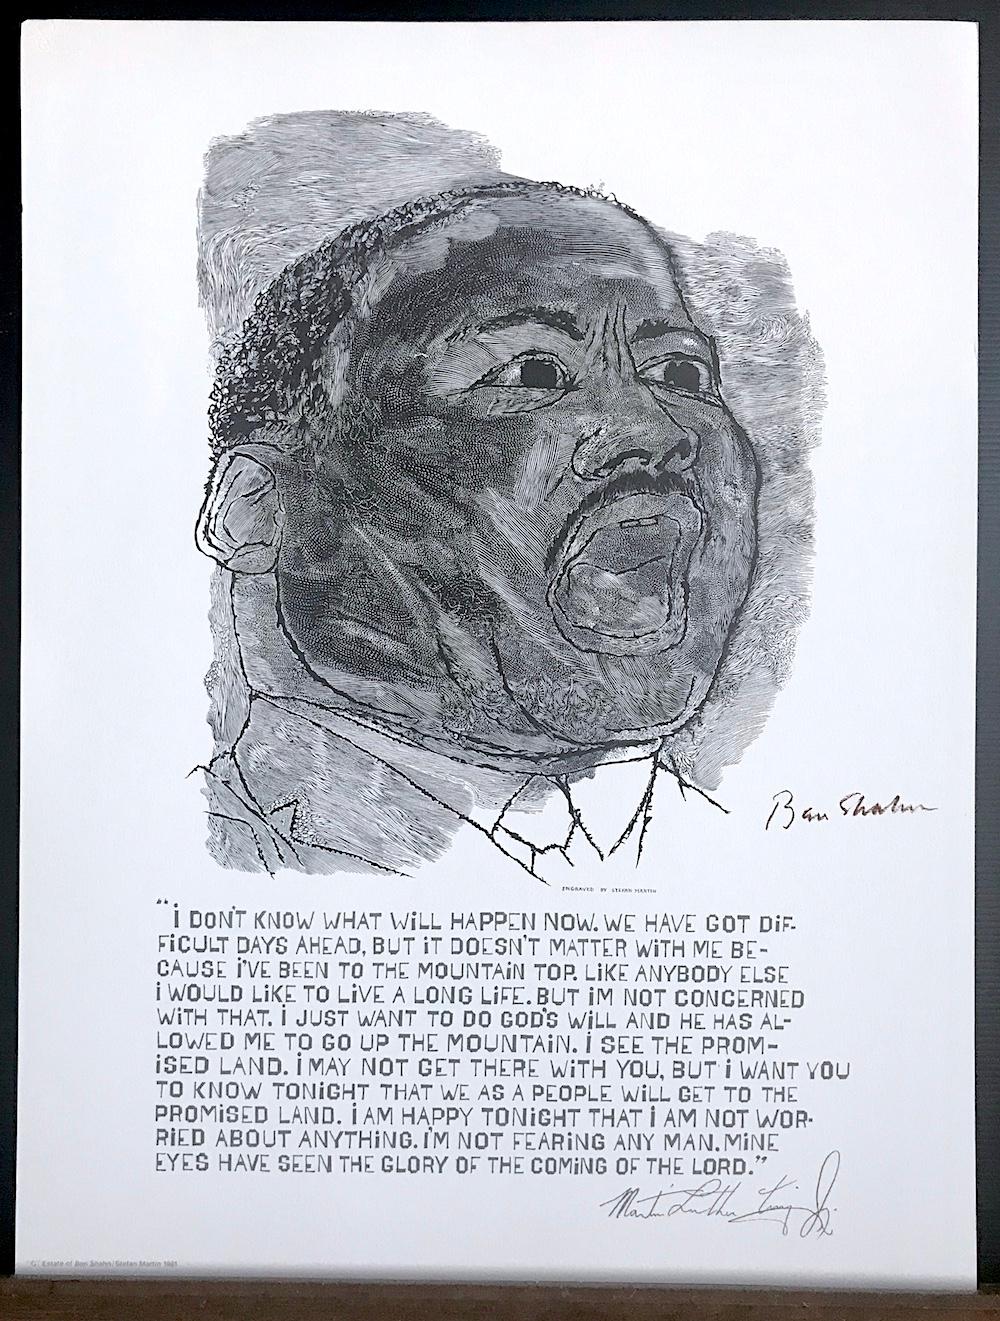 Ben Shahn
ENGRAVED BY STEFAN MARTIN
"i DON'T KNOW WHAT WiLL HAPPEN NOW. WE HAVE GOT DiF-
FiCULT DAYS AHEAD, BUT iT DOESN'T MATTER WiTH ME BE-
CAUSE i'VE BEEN TO THE MOUNTAiN TOP. LiKE ANYBODY ELSE
i WOULD LiKE TO LiVE A LONG LiFE. BUT iM NOT CONCERNED
WiTH THAT. i JUST WANT TO DO GOD'S WiLL AND HE HAS AL-
LOWED ME TO GO UP THE MOUNTAiN. i SEE THE PROM-
iSED LAND. i MAY NOT GET THERE WiTH YOU, BUT i WANT YOU
TO KNOW TONiGHT THAT WE AS A PEOPLE WiLL GET TO THE
PROMiSED LAND. i AM HAPPY TONiGHT THAT i AM NOT WOR-
RiED ABOUT ANYTHiNG. i'M NOT FEARiNG ANY MAN. MiNE
EYES HAVE SEEN THE GLORY OF THE COMiNG OF THE LORD."
Martin Luther King Jr.
©Estate of Ben Shahn/Stefan Martin 1981